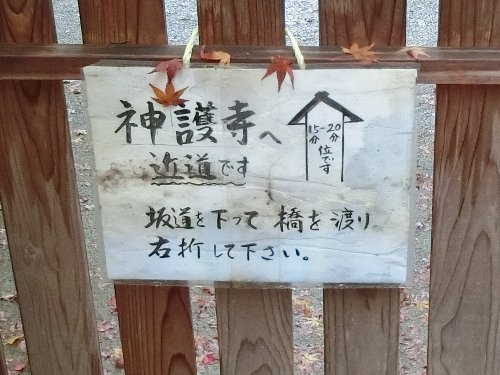 神護寺へ
近道です
15分-20分位です
坂道を下って橋を渡り
右折して下さい。